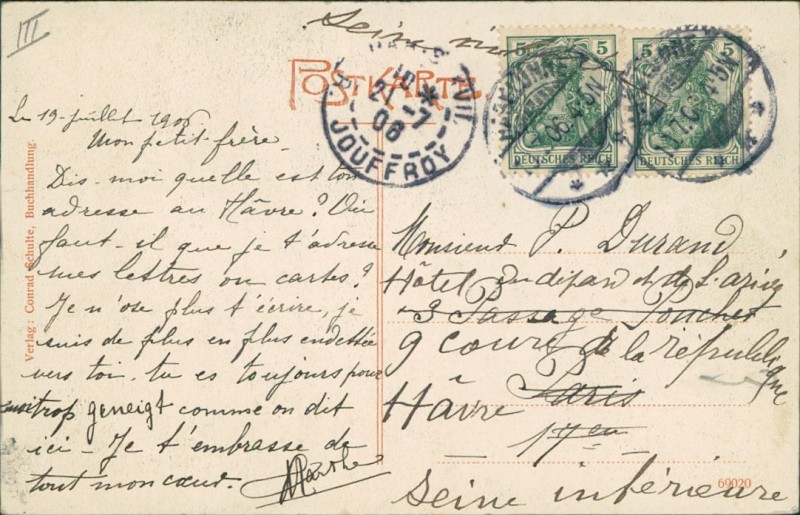 III
Seine
POSTKARTE
5 5
DEUTSCHES REICH
5 5
DEUTSCHES REICH
21 -7
06
JOUFFROY
Le 19 juillet 1906
Mon petit frère.
Dis-moi quelle est ton
adresse au Hâvre? Où
faut-il que je t'adresse
mes lettres ou cartes?
Je n'ose plus t'écrire, je
suis de plus en plus endettée
vers toi. tu es toujours pour
trop geneigt comme on dit
ici - Je t'embrasse de
tout mon cœur. Marthe
Monsieur P. Durand,
Hôtel du départ et de l'arrivée
3 Passage Pouchet
9 cours de la république
Hâvre Paris
17em
Seine inférieure
69020
Verlag: Conrad Schulte, Buchhandlung.